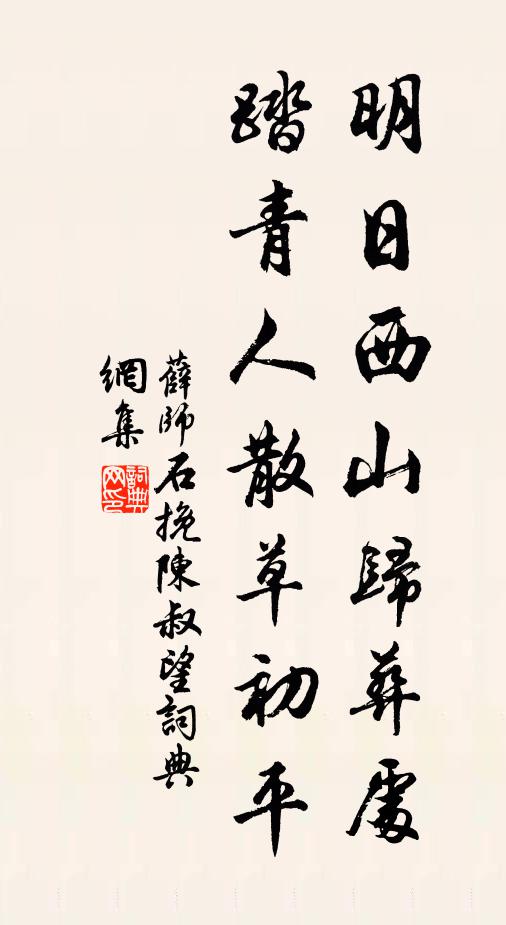 明日西山歸葬處
踏青人散草初平
薛師石挽陳叔望詞典
網集
詞典網印